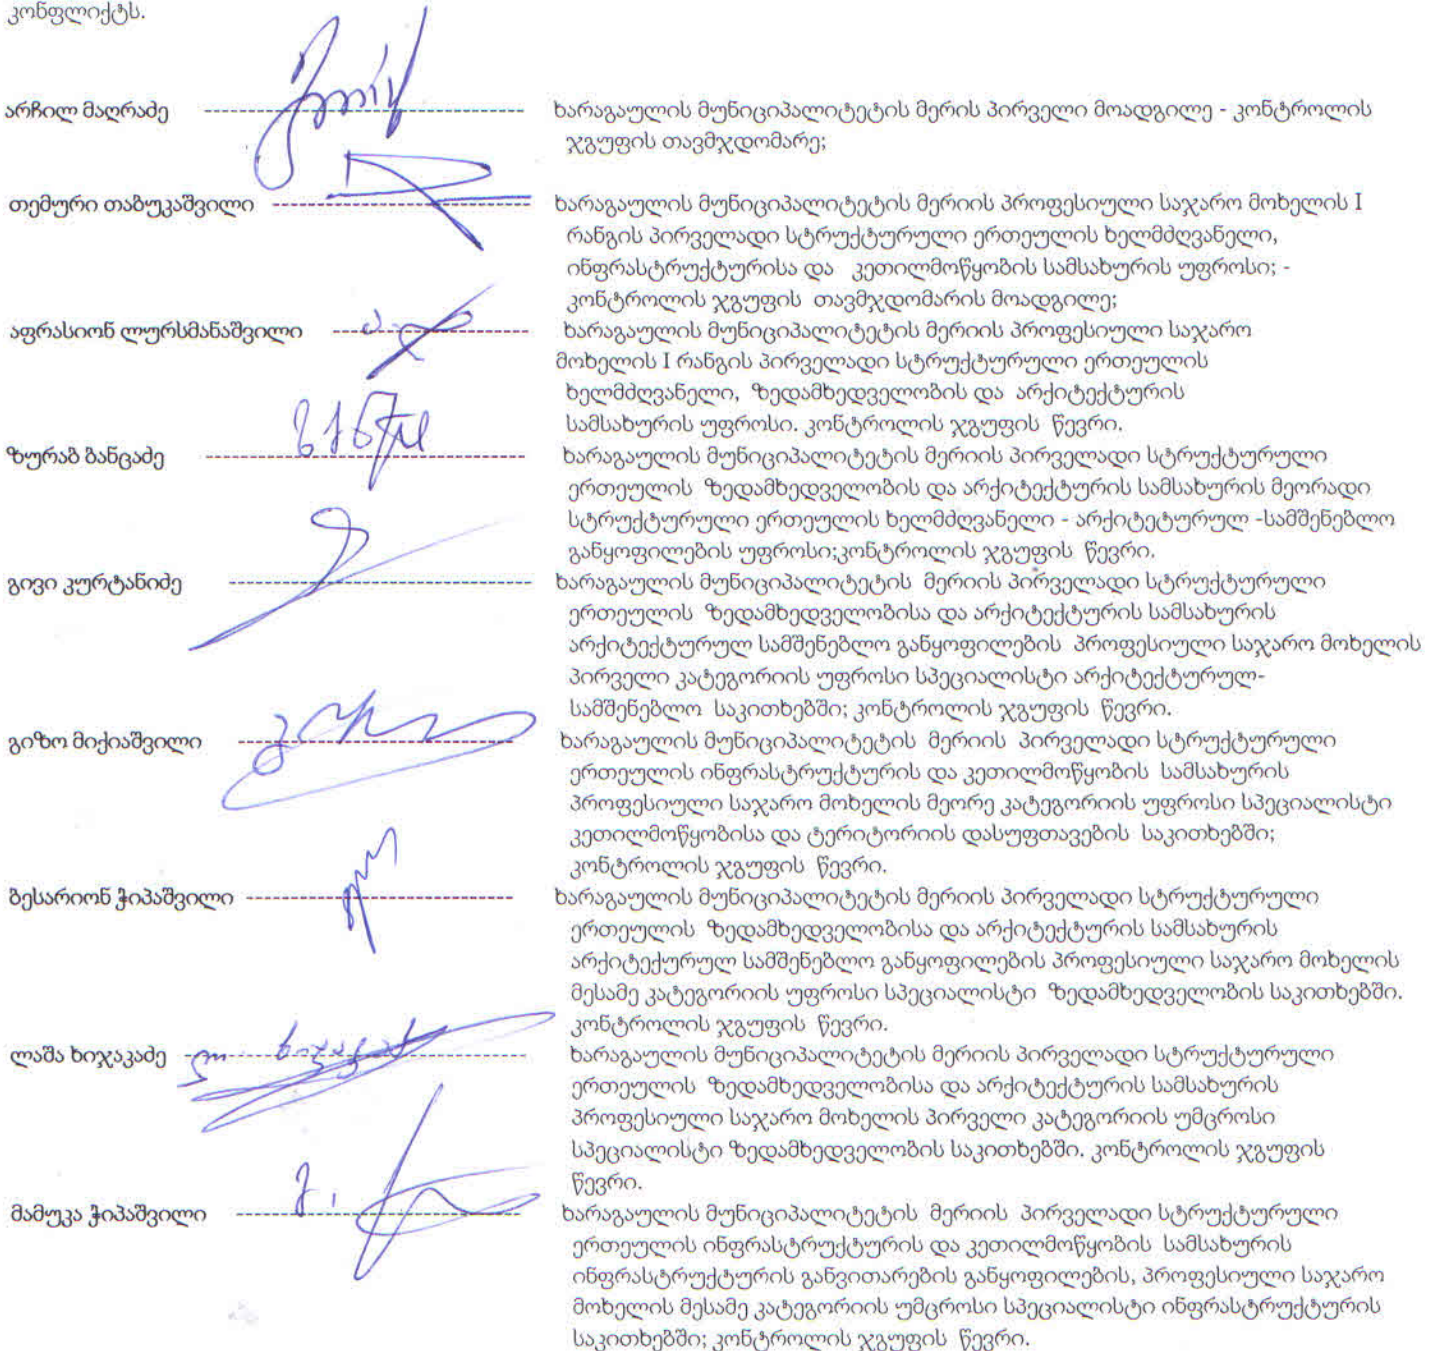 კონფლიქტს.
არჩილ მაღრაძე ხარაგაულის მუნიციპალიტეტის მერის პირველი მოადგილე - კონტროლის
ჯგუფის თავმჯდომარე;
თემური თაბუკაშვილი ხარაგაულის მუნიციპალიტეტის მერიის პროფესიული საჯარო მოხელის I
რანგის პირველადი სტრუქტურული ერთეულის ხელმძღვანელი,
ინფრასტრუქტურისა და კეთილმოწყობის სამსახურის უფროსი; -
კონტროლის ჯგუფის თავმჯდომარის მოადგილე;
აფრასიონ ლურსმანაშვილი ხარაგაულის მუნიციპალიტეტის მერიის პროფესიული საჯარო
მოხელის I რანგის პირველადი სტრუქტურული ერთეულის
ხელმძღვანელი, ზედამხედველობის და არქიტექტურის
სამსახურის უფროსი. კონტროლის ჯგუფის წევრი.
ზურაბ ბანცაძე ხარაგაულის მუნიციპალიტეტის მერიის პირველადი სტრუქტურული
ერთეულის ზედამხედველობის და არქიტექტურის სამსახურის მეორადი
სტრუქტურული ერთეულის ხელმძღვანელი - არქიტეტურულ -სამშენებლო
განყოფილების უფროსი;კონტროლის ჯგუფის წევრი.
გივი კურტანიძე ხარაგაულის მუნიციპალიტეტის მერიის პირველადი სტრუქტურული
ერთეულის ზედამხედველობისა და არქიტექტურის სამსახურის
არქიტექტურულ სამშენებლო განყოფილების პროფესიული საჯარო მოხელის
პირველი კატეგორიის უფროსი სპეციალისტი არქიტექტურულ-
სამშენებლო საკითხებში; კონტროლის ჯგუფის წევრი.
გიზო მიქიაშვილი ხარაგაულის მუნიციპალიტეტის მერიის პირველადი სტრუქტურული
ერთეულის ინფრასტრუქტურის და კეთილმოწყობის სამსახურის
პროფესიული საჯარო მოხელის მეორე კატეგორიის უფროსი სპეციალისტი
კეთილმოწყობისა და ტერიტორიის დასუფთავების საკითხებში;
კონტროლის ჯგუფის წევრი.
ბესარიონ ჭიპაშვილი ხარაგაულის მუნიციპალიტეტის მერიის პირველადი სტრუქტურული
ერთეულის ზედამხედველობისა და არქიტექტურის სამსახურის
არქიტექურულ სამშენებლო განყოფილების პროფესიული საჯარო მოხელის
მესამე კატეგორიის უფროსი სპეციალისტი ზედამხედველობის საკითხებში.
კონტროლის ჯგუფის წევრი.
ლაშა ხიჯაკაძე ხარაგაულის მუნიციპალიტეტის მერიის პირველადი სტრუქტურული
ერთეულის ზედამხედველობისა და არქიტექტურის სამსახურის
პროფესიული საჯარო მოხელის პირველი კატეგორიის უმცროსი
სპეციალისტი ზედამხედველობის საკითხებში. კონტროლის ჯგუფის
წევრი.
მამუკა ჭიპაშვილი ხარაგაულის მუნიციპალიტეტის მერიის პირველადი სტრუქტურული
ერთეულის ინფრასტრუქტურის და კეთილმოწყობის სამსახურის
ინფრასტრუქტურის განვითარების განყოფილების, პროფესიული საჯარო
მოხელის მესამე კატეგორიის უმცროსი სპეციალისტი ინფრასტრუქტურის
საკითხებში; კონტროლის ჯგუფის წევრი.